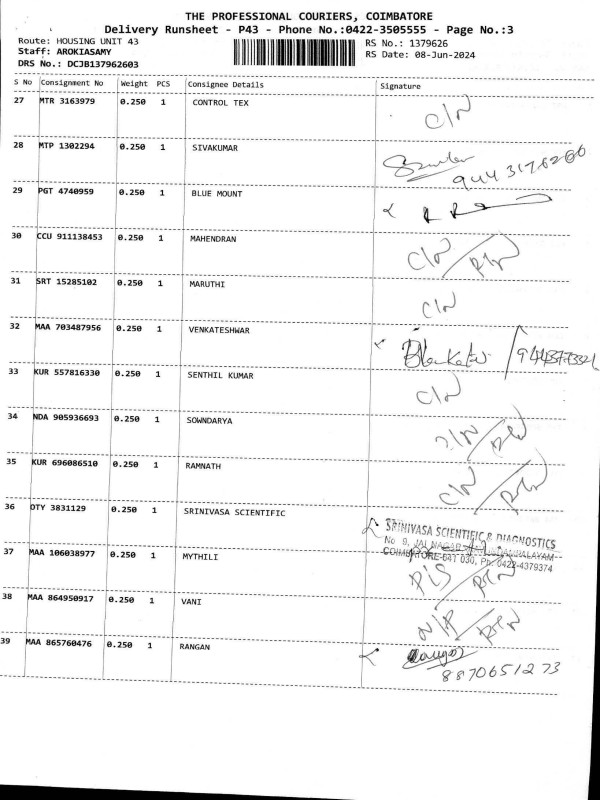 THE PROFESSIONAL COURIERS, COIMBATORE
Delivery Runsheet - P43 - Phone No.:0422-3505555 - Page No.:3
Route: HOUSING UNIT 43 RS No.: 1379626
Staff: AROKIASAMY RS Date: 08-Jun-2024
DRS No.: DCJB137962603
S No Consignment No Weight PCS Consignee Details Signature
27 MTR 3163979 0.250 1 CONTROL TEX C/N
28 MTP 1302294 0.250 1 SIVAKUMAR
29 PGT 4740959 0.250 1 BLUE MOUNT
30 CCU 911138453 0.250 1 MAHENDRAN C/N
31 SRT 15285102 0.250 1 MARUTHI C/N
32 MAA 703487956 0.250 1 VENKATESHWAR
33 KUR 557816330 0.250 1 SENTHIL KUMAR C/N
34 NDA 905936693 0.250 1 SOWNDARYA C/N
35 KUR 696086510 0.250 1 RAMNATH C/N
36 OTY 3831129 0.250 1 SRINIVASA SCIENTIFIC
SRINIVASA SCIENTIFIC & DIAGNOSTICS
No 9, JAI NAGAR
COIMBATORE-641 030, Ph: 0422-4379374
37 MAA 106038977 0.250 1 MYTHILI
38 MAA 864950917 0.250 1 VANI
39 MAA 865760476 0.250 1 RANGAN
8870651273